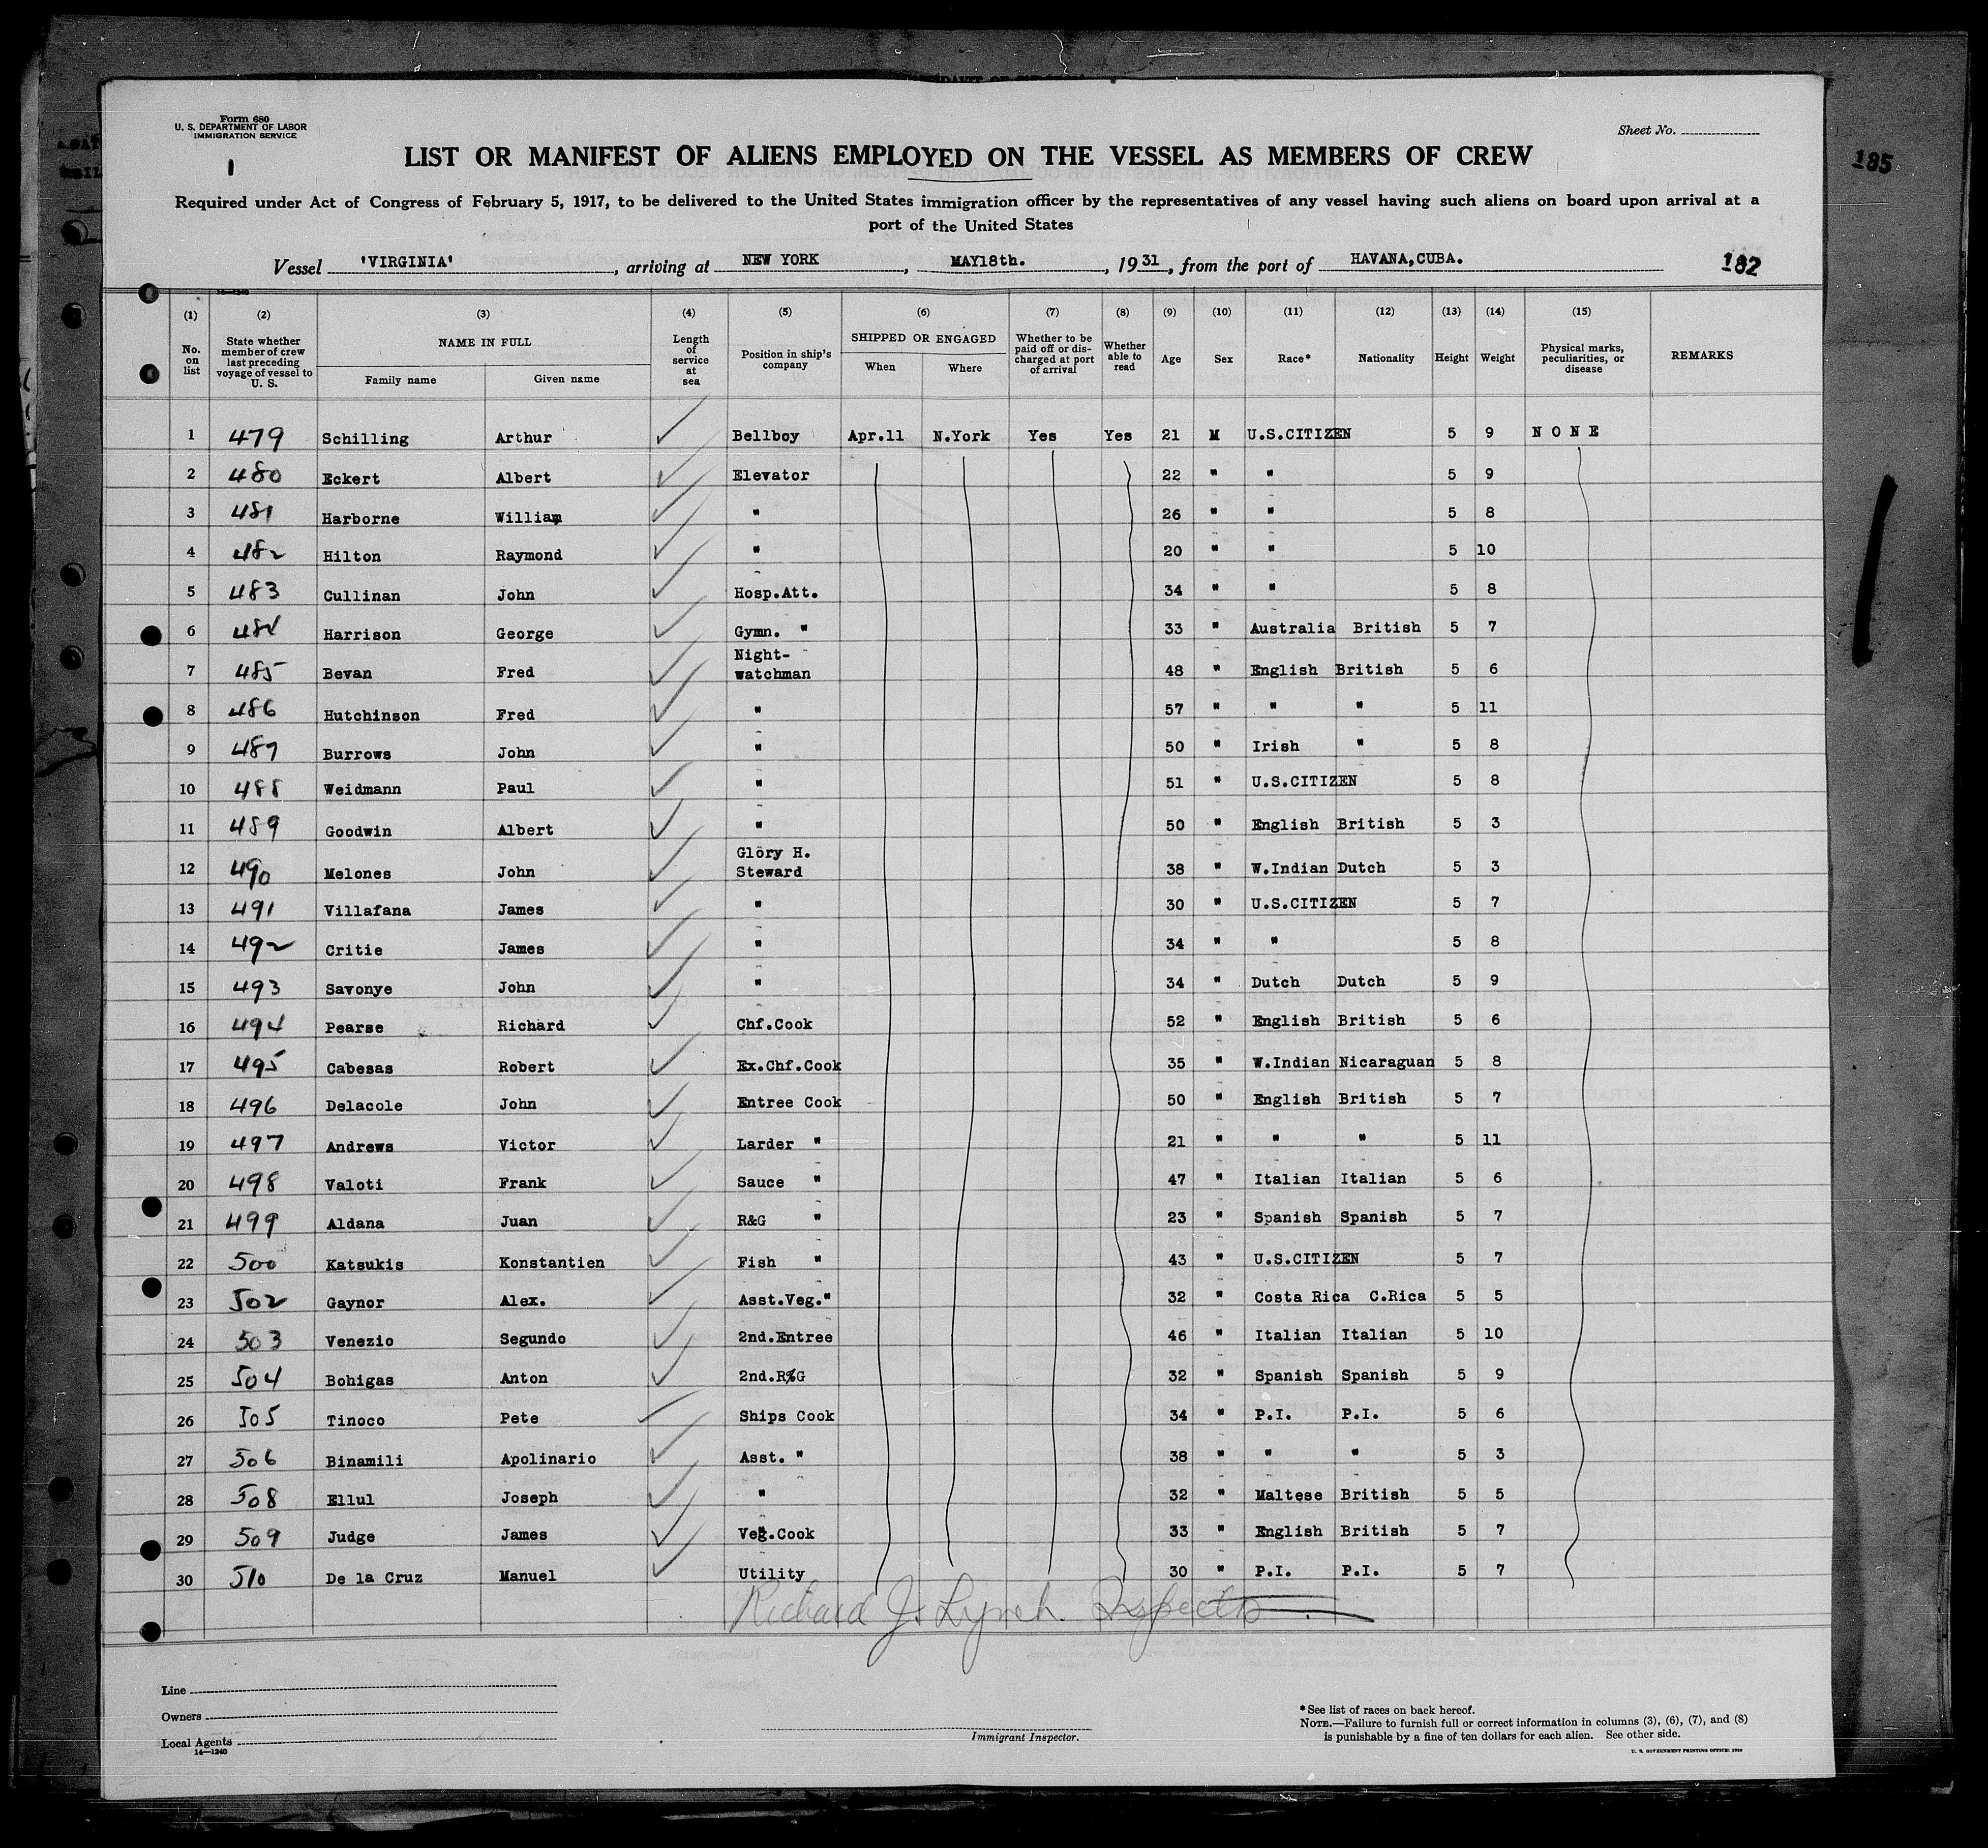 Form 680
U. S. DEPARTMENT OF LABOR
IMMIGRATION SERVICE
1
Sheet No.
LIST OR MANIFEST OF ALIENS EMPLOYED ON THE VESSEL AS MEMBERS OF CREW
185
Required under Act of Congress of February 5, 1917, to be delivered to the United States immigration officer by the representatives of any vessel having such aliens on board upon arrival at a
port of the United States
Vessel 'VIRGINIA' , arriving at NEW YORK , MAY18th. , 1931, from the port of HAVANA,CUBA. 182
(1) (2) (3) (4) (5) (6) (7) (8) (9) (10) (11) (12) (13) (14) (15)
No. on list State whether member of crew last preceding voyage of vessel to U. S. NAME IN FULL Family name Given name Length of service at sea Position in ship's company SHIPPED OR ENGAGED When Where Whether to be paid off or discharged at port of arrival Whether able to read Age Sex Race* Nationality Height Weight Physical marks, peculiarities, or disease REMARKS
1 479 Schilling Arthur ✓ Bellboy Apr.11 N.York Yes Yes 21 M U.S.CITIZEN 5 9 NONE
2 480 Eckert Albert ✓ Elevator 22 " " 5 9
3 481 Harborne William ✓ " 26 " " 5 8
4 482 Hilton Raymond ✓ " 20 " " 5 10
5 483 Cullinan John ✓ Hosp.Att. 34 " " 5 8
6 484 Harrison George ✓ Gymn. " 33 " Australia British 5 7
7 485 Bevan Fred ✓ Night-watchman 48 " English British 5 6
8 486 Hutchinson Fred ✓ " 57 " " " 5 11
9 487 Burrows John ✓ " 50 " Irish " 5 8
10 488 Weidmann Paul ✓ " 51 " U.S.CITIZEN 5 8
11 489 Goodwin Albert ✓ " 50 " English British 5 3
12 490 Melones John ✓ Glory H. Steward 38 " W.Indian Dutch 5 3
13 491 Villafana James ✓ " 30 " U.S.CITIZEN 5 7
14 492 Critie James ✓ " 34 " " 5 8
15 493 Savonye John ✓ " 34 " Dutch Dutch 5 9
16 494 Pearse Richard ✓ Chf.Cook 52 " English British 5 6
17 495 Cabesas Robert ✓ Ex.Chf.Cook 35 " W.Indian Nicaraguan 5 8
18 496 Delacole John ✓ Entree Cook 50 " English British 5 7
19 497 Andrews Victor ✓ Larder " 21 " " " 5 11
20 498 Valoti Frank ✓ Sauce " 47 " Italian Italian 5 6
21 499 Aldana Juan ✓ R&G " 23 " Spanish Spanish 5 7
22 500 Katsukis Konstantien ✓ Fish " 43 " U.S.CITIZEN 5 7
23 502 Gaynor Alex. ✓ Asst.Veg." 32 " Costa Rica C.Rica 5 5
24 503 Venezio Segundo ✓ 2nd.Entree 46 " Italian Italian 5 10
25 504 Bohigas Anton ✓ 2nd.R&G 32 " Spanish Spanish 5 9
26 505 Tinoco Pete ✓ Ships Cook 34 " P.I. P.I. 5 6
27 506 Binamili Apolinario ✓ Asst. " 38 " " " 5 3
28 508 Ellul Joseph ✓ " 32 " Maltese British 5 5
29 509 Judge James ✓ Veg.Cook 33 " English British 5 7
30 510 De la Cruz Manuel ✓ Utility 30 " P.I. P.I. 5 7
Richard J. Lynch. Inspector
Line
Owners
Local Agents
14—1240
Immigrant Inspector.
* See list of races on back hereof.
NOTE.—Failure to furnish full or correct information in columns (3), (6), (7), and (8)
is punishable by a fine of ten dollars for each alien. See other side.
U. S. GOVERNMENT PRINTING OFFICE: 1929